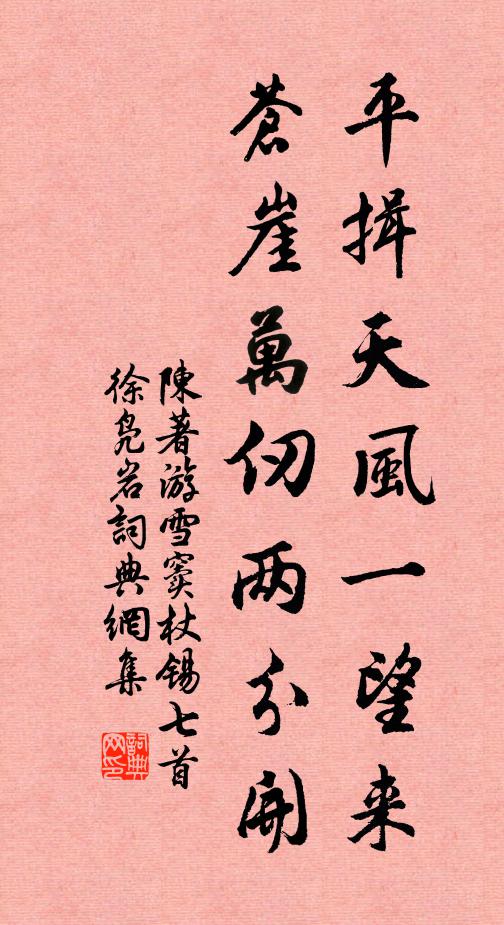 平揖天風一望来
蒼崖萬仞两分開
陳著游雪窦杖錫七首
徐凫岩詞典網集
詞典
网印